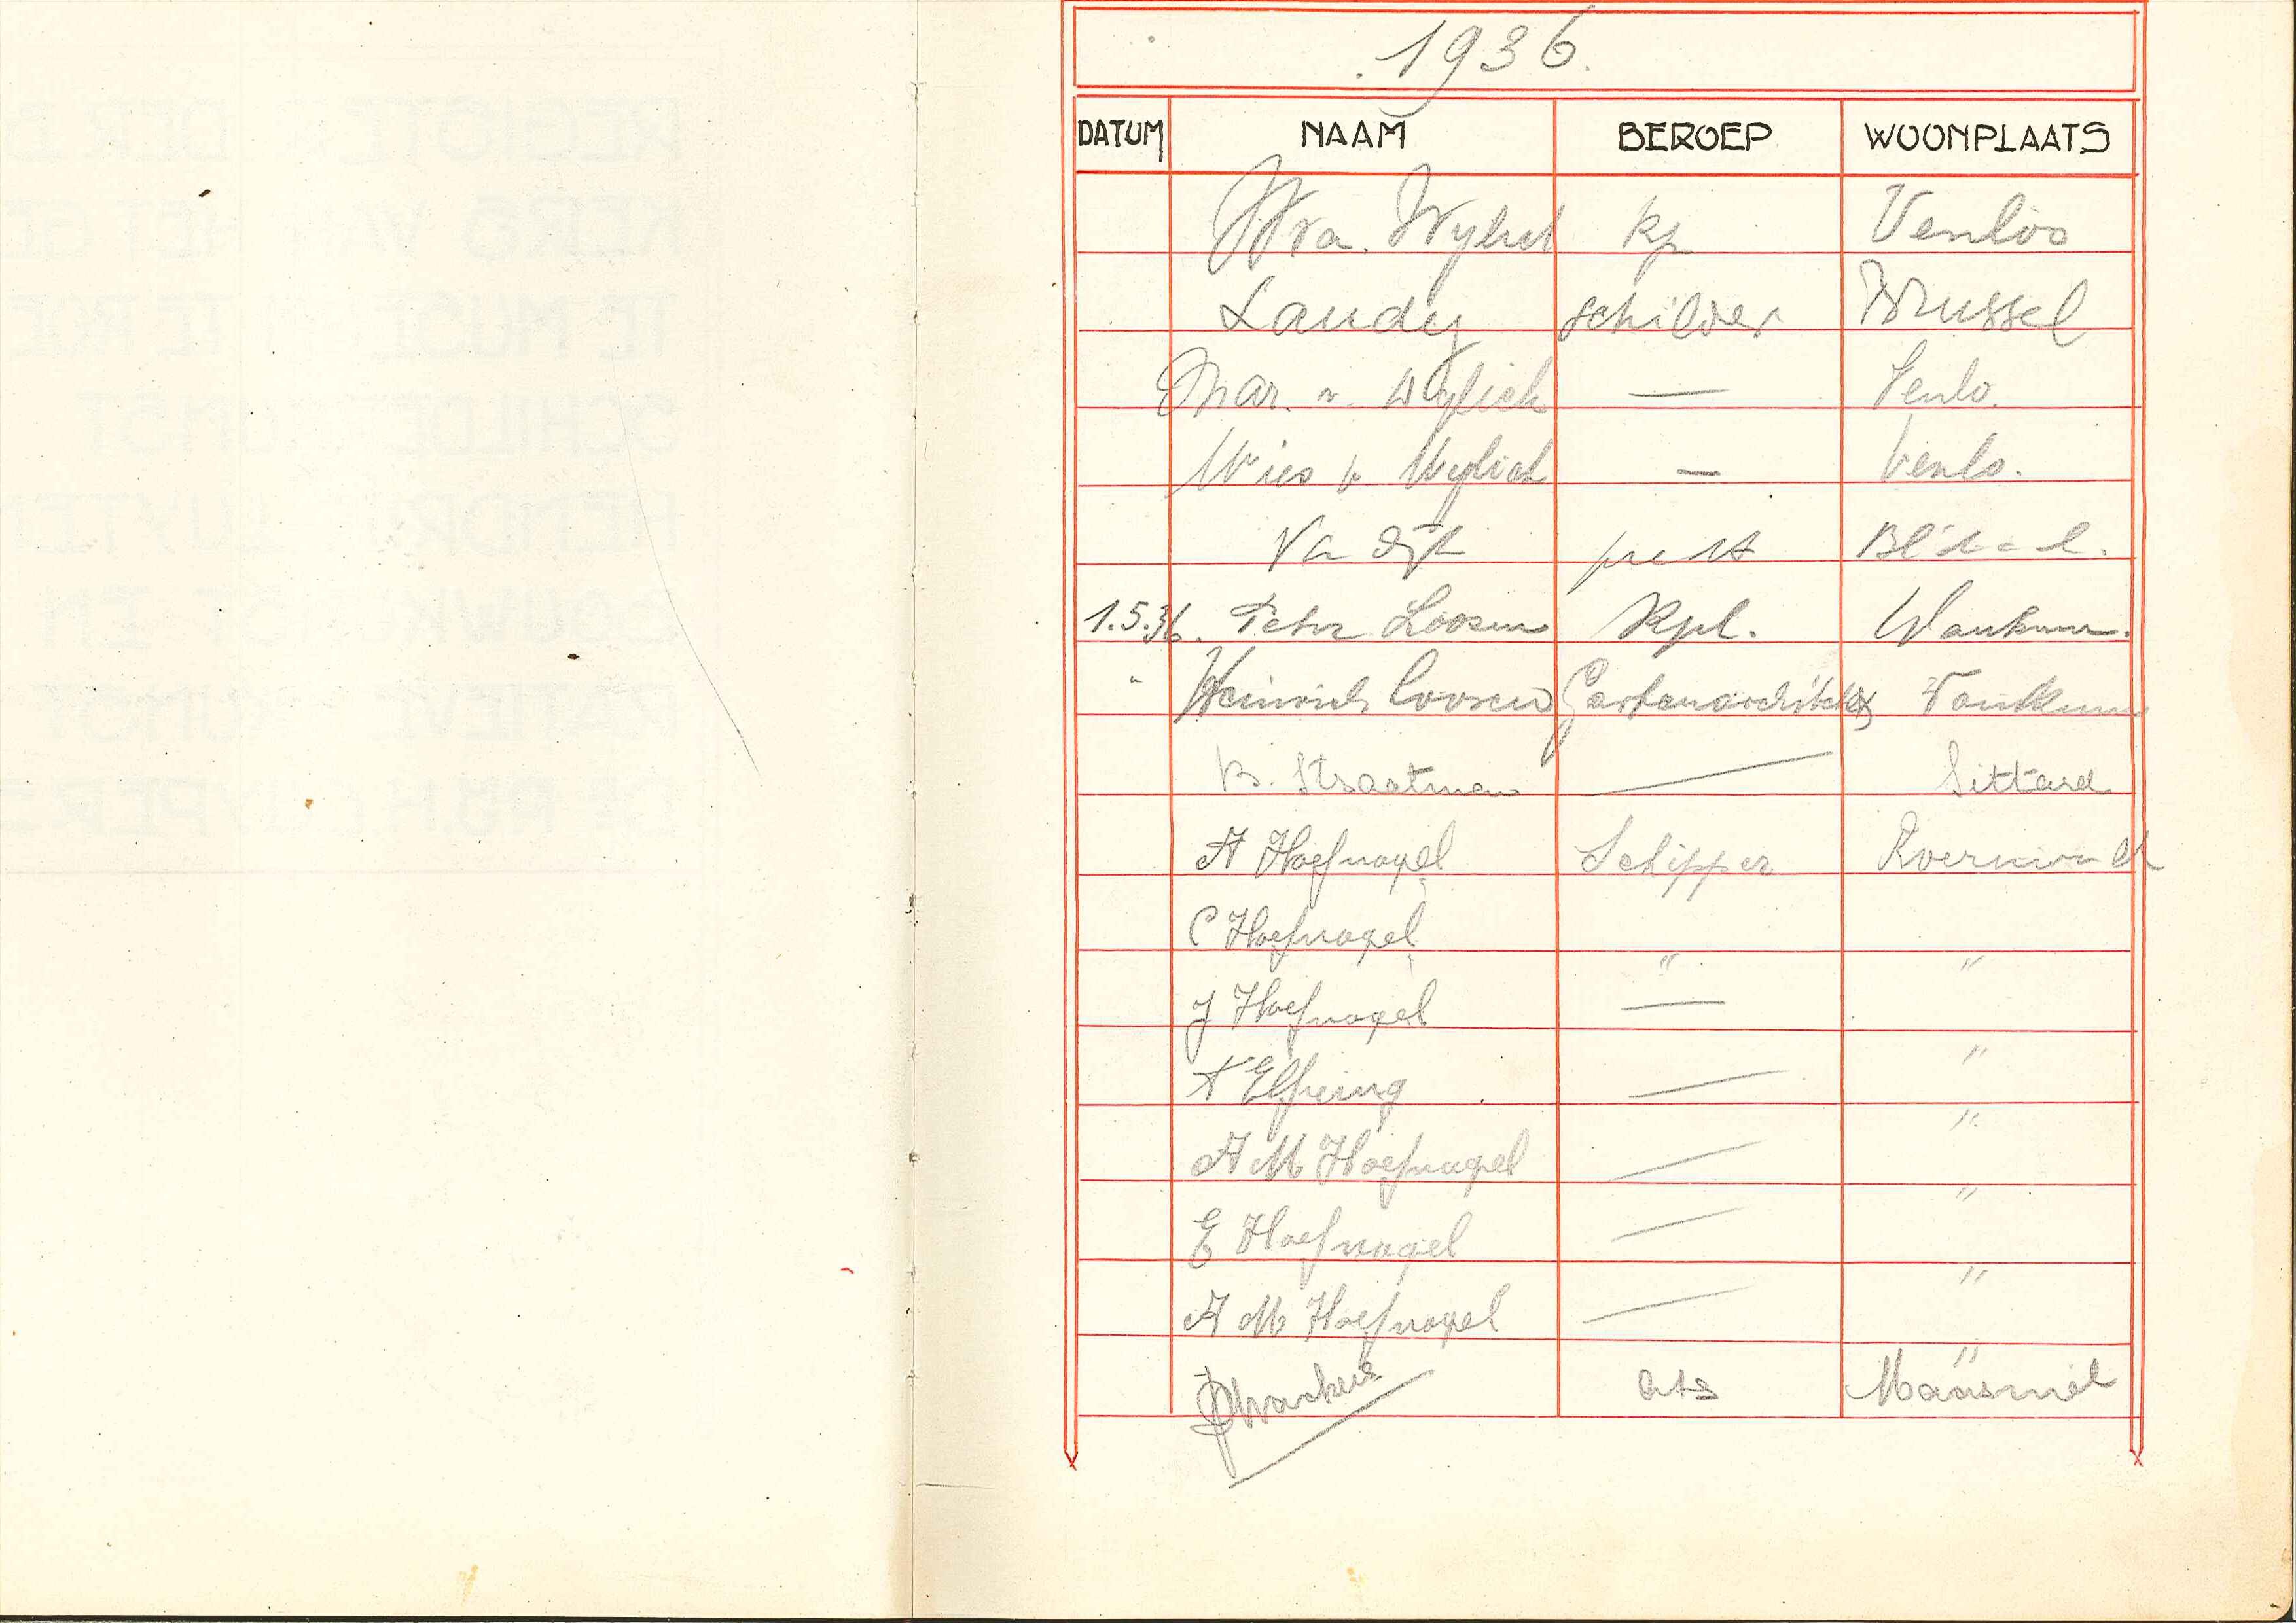 1936.
DATUM NAAM BEROEP WOONPLAATS
Wva. Wylick kp Venloo
Laudy schilder Brussel
Mar. v. Wylick — Venlo.
Wies v. Wylick — Venlo.
Va Dijk
1.5.36. Peter Loosen Kpl. Wankum.
" Heinrich Loosen Gartenarchitekt Wankum
B. Straatman — Sittard
A Hoefnagel Schipper Roermond
C Hoefnagel " "
J Hoefnagel — "
A Elfring — "
A M Hoefnagel — "
E Hoefnagel — "
A M Hoefnagel — "
arts Maasniel